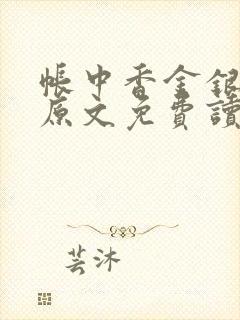 帳中香金銀
原文免費讀
芸沐